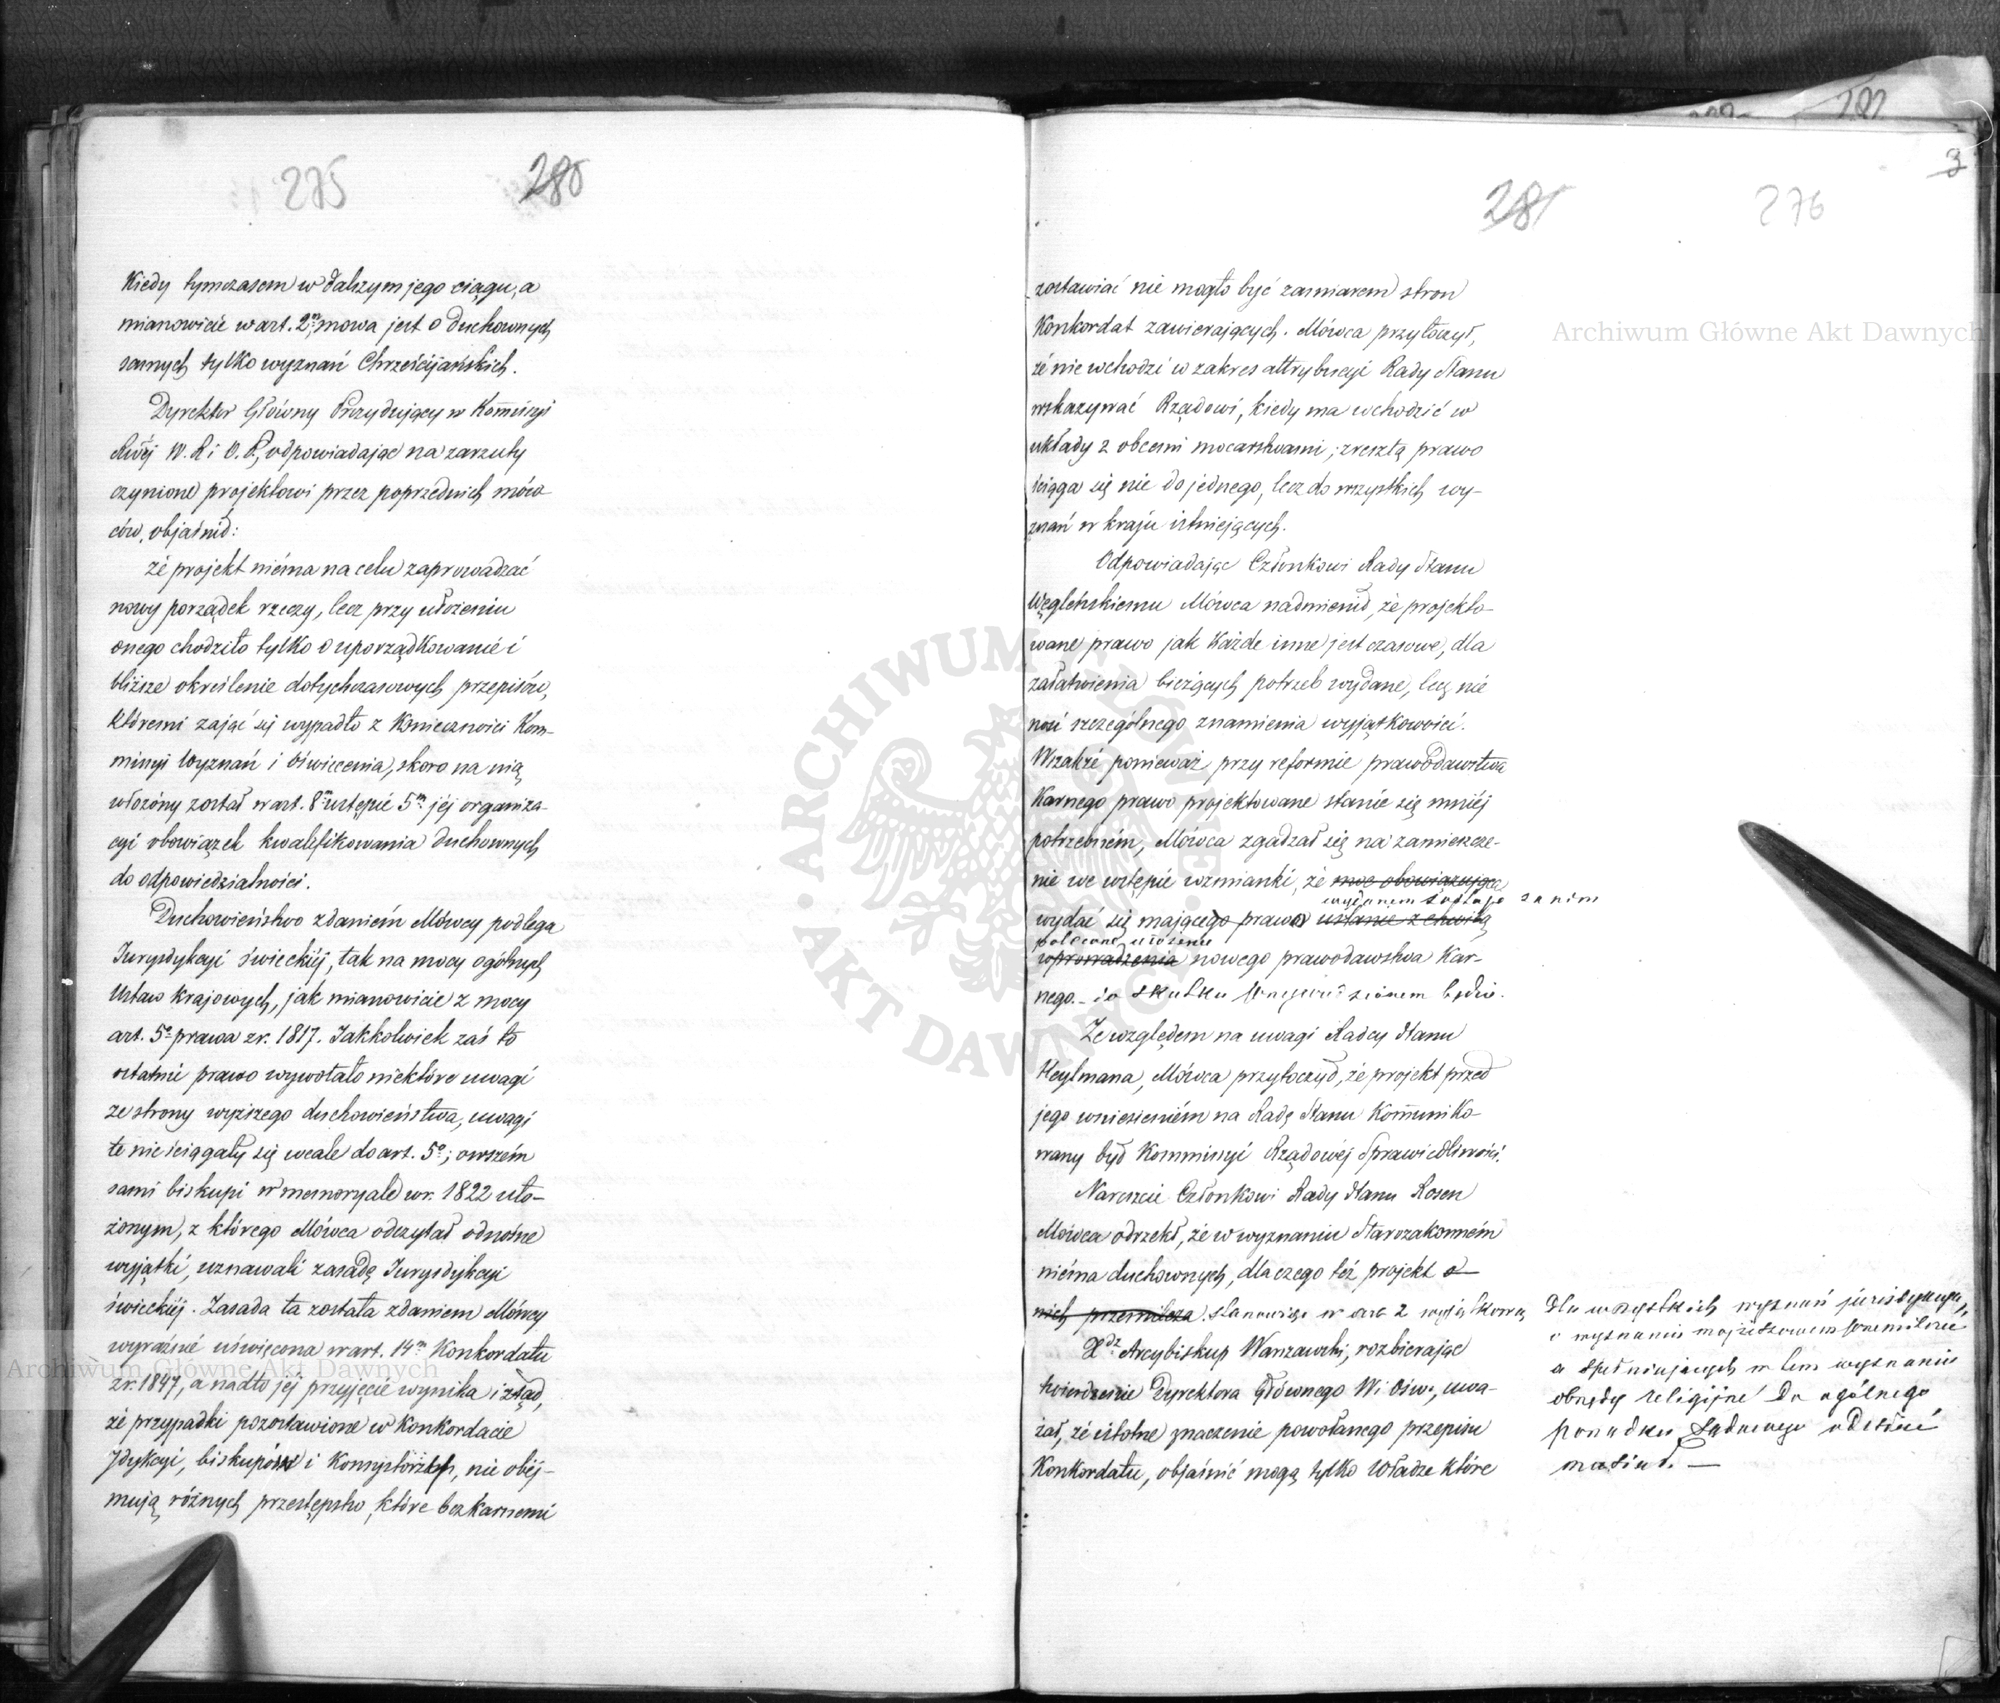 275 280
Kiedy tymczasem w dalszym jego ciągu, a
mianowicie w art. 2m mowa jest o duchownych
samych tylko wyznań Chrześcijańskich.
Dyrektor Główny Prezydujący w Kommissyi
Rwéj W. R i O. P., odpowiadając na zarzuty
czynione projektowi przez poprzednich mów-
ców, objaśnił:
że projekt niema na celu zaprowadzać
nowy porządek rzeczy, lecz przy ułożeniu
onego chodziło tylko o uporządkowanie i
bliższe określenie dotychczasowych przepisów,
któremi zająć się wypadło z konieczności Kom-
missyi Wyznań i Oświecenia, skoro na nią
włożony został w art. 8m ustępie 5m jéj organiza-
cyi obowiązek kwalifikowania duchownych
do odpowiedzialności.
Duchowieństwo zdaniem Mówcy podlega
Jurysdykcyi świeckiéj, tak na mocy ogólnych
Ustaw krajowych, jak mianowicie z mocy
art. 5o prawa z r. 1817. Jakkolwiek zaś to
ostatnie prawo wywołało niektóre uwagi
ze strony wyższego duchowieństwa, uwagi
te nie ściągały się wcale do art. 5o; owszem
sami biskupi w memoryale w r. 1822 uło-
żonym, z którego Mówca odczytał odnośne
wyjątki, uznawali zasadę Jurysdykcyi
świeckiéj. Zasada ta została zdaniem Mówcy
wyraźnie uświęcona w art. 14m Konkordatu
z r. 1847, a nadto jéj przyjęcie wynika i ztąd,
że przypadki pozostawione w Konkordacie
Jdykcyi, biskupów i Konsystorzy, nie obéj-
mują różnych przestępstw, które bezkarnemi
282
3
281 276
zostawiać nie mogło być zamiarem stron
Konkordat zawierających. Mówca przytoczył,
że nie wchodzi w zakres attrybucyi Rady Stanu
wskazywać Rządowi, kiedy ma wchodzić w
układy z obcemi mocarstwami; zresztą prawo
ściąga się nie do jednego, lecz do wszystkich wy-
znań w kraju istniejących.
Odpowiadając Członkowi Rady Stanu
Węgleńskiemu Mówca nadmienił, że projekto-
wane prawo jak każde inne jest czasowe, dla
załatwienia bieżących potrzeb wydane, lecz nie
nosi szczególnego znamienia wyjątkowości.
Wszakże ponieważ przy reformie prawodawstwa
Karnego prawo projektowane stanie się mniéj
potrzebném, Mówca zgadzał się na zamieszcze-
nie we wstępie wzmianki, że moc obowiązująca
wydać się mającego prawo ustanie z chwilą
polecone ułożenie
wprowadzenia nowego prawodawstwa Kar-
nego.
Ze względem na uwagi Radcy Stanu
Heylmana, Mówca przytoczył, że projekt przed
jego wniesieniém na Radę Stanu Kommuniko-
wany był Kommissyi Rządowéj Sprawiedliwości.
Nareszcie Członkowi Rady Stanu Rosen
Mówca odrzekł, że w wyznaniu Starozakonném
niéma duchownych, dlaczego téż projekt o
nich przemilcza. stanowiąc w art 2 wyjątkową
Xdz Arcybiskup Warszawski, rozbierając
twierdzenie Dyrektora Głównego W i Ośw., uwa-
żał, że istotne znaczenie powołanego przepisu
Konkordatu, objaśnić mogą tylko Władze które
dla wszystkich wyznań jurisdykcyą,
o wyznaniu mojżeszowem
a spełniających w tem wyznaniu
obrzędy religijne do ogólnego
porządku sądowego odesłać
musiał.
Archiwum Główne Akt Dawnych
Archiwum Główne Akt Dawnych
ARCHIWUM GŁÓWNE
AKT DAWNYCH